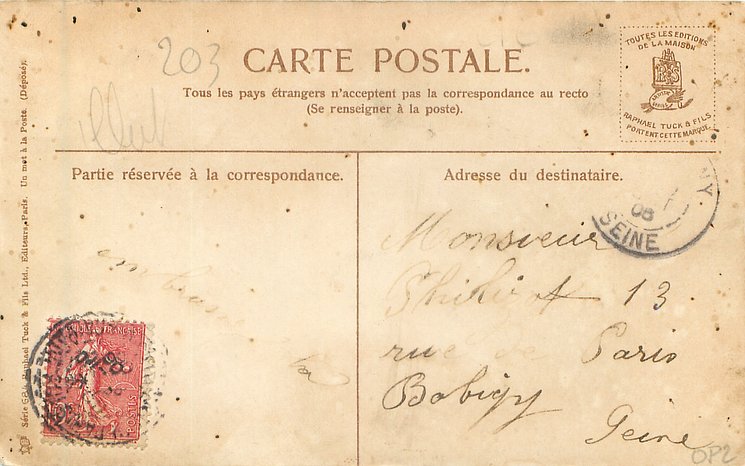 203
CARTE POSTALE.
Tous les pays étrangers n'acceptent pas la correspondance au recto
(Se renseigner à la poste).
TOUTES LES EDITIONS
DE LA MAISON
RAPHAEL TUCK & FILS
PORTENT CETTE MARQUE.
Partie réservée à la correspondance.
Adresse du destinataire.
NY
08
SEINE
Monsieur
13
rue de Paris
Bobigny
Seine
FRANÇAISE
POSTES
Raphael Tuck & Fils Ltd., Editeurs, Paris. Un mot à la Poste. (Déposé).
OP2